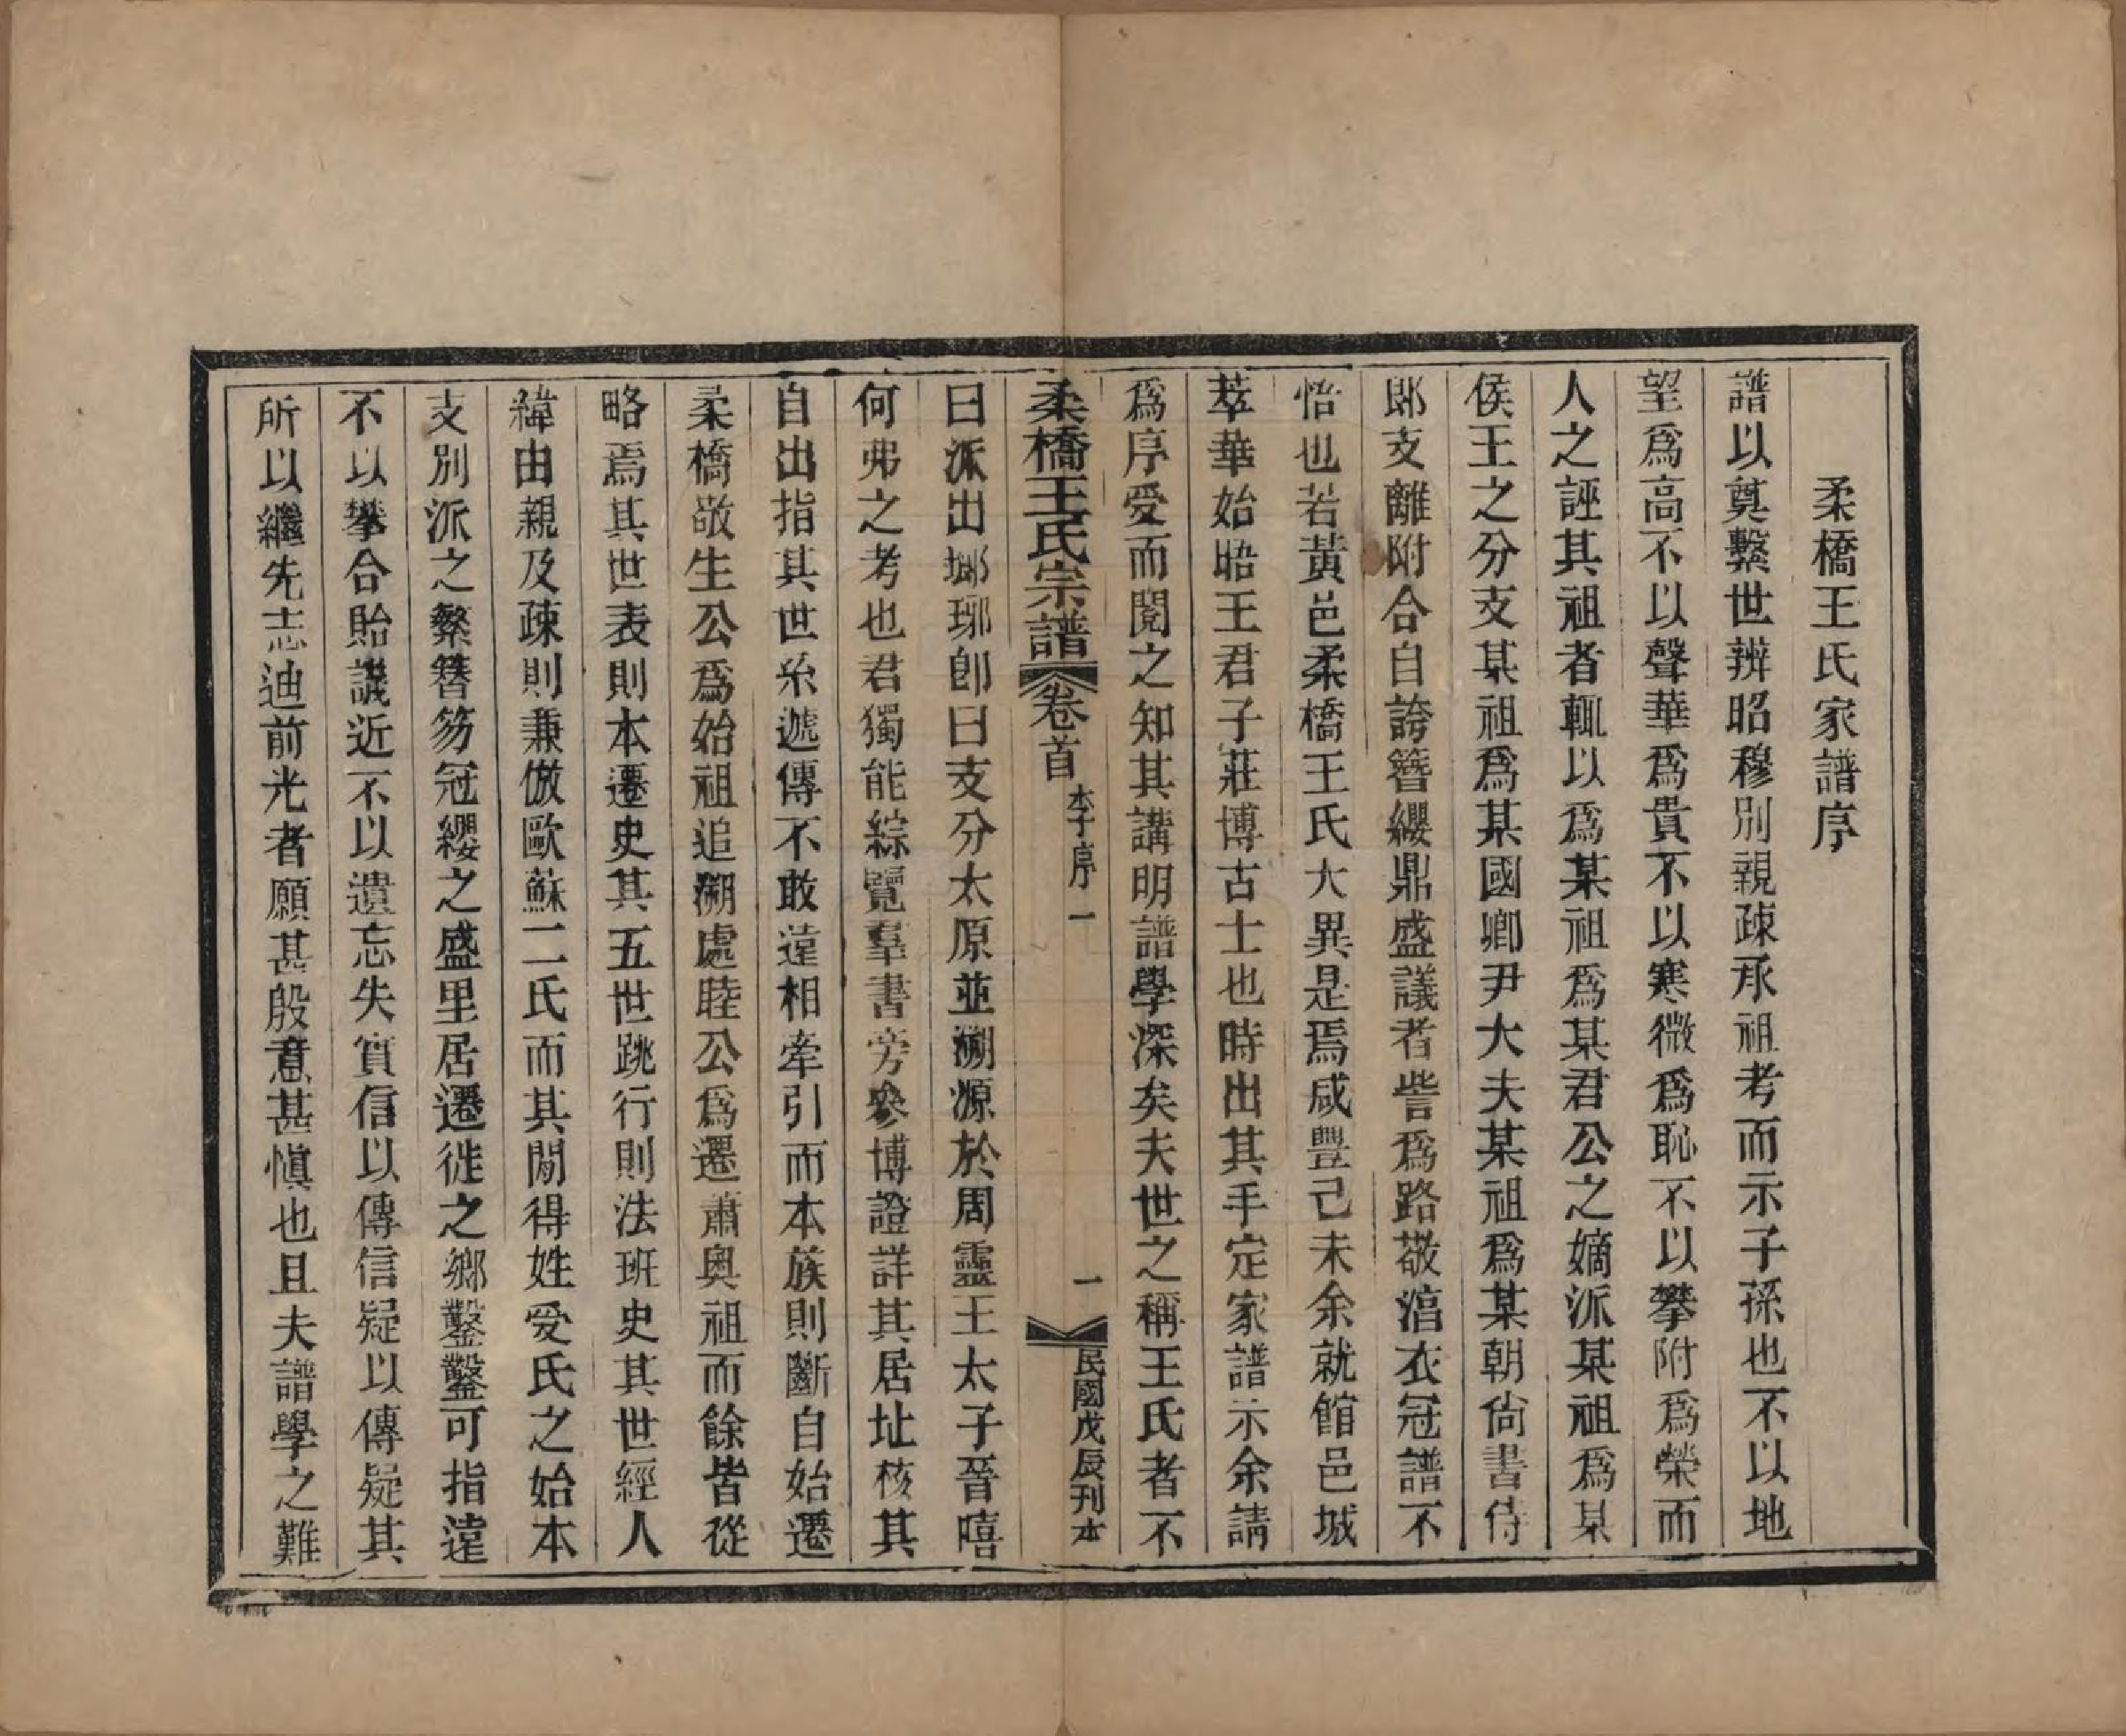 柔橋王氏家譜序
譜以奠繫世辨昭穆別親疎承祖考而示子孫也不以地
望爲高不以聲華爲貴不以寒微爲恥不以攀附爲榮而
人之誣其祖者輒以爲某祖爲某君公之嫡派某祖爲某
侯王之分支某祖爲某國卿尹大夫某祖爲某朝尙書侍
郎支離附合自誇簪纓鼎盛議者訾爲路敬淳衣冠譜不
怡也若黃邑柔橋王氏大異是焉咸豐己未余就館邑城
萃華始晤王君子莊博古士也時出其手定家譜示余請
爲序受而閱之知其講明譜學深矣夫世之稱王氏者不
柔橋王氏宗譜 卷首 李序一 一 民國戊辰刊本
曰派出瑯琊卽曰支分太原並溯源於周靈王太子晉嘻
何弗之考也君獨能綜覽羣書旁參博證詳其居址核其
自出指其世系遞傳不敢遠相牽引而本族則斷自始遷
柔橋敬生公爲始祖追溯處睦公爲遷蕭奧祖而餘皆從
略焉其世表則本遷史其五世跳行則法班史其世經人
緯由親及疎則兼倣歐蘇二氏而其閒得姓受氏之始本
支別派之繁簪笏冠纓之盛里居遷徙之鄉鑿鑿可指遠
不以攀合貽譏近不以遺忘失實信以傳信疑以傳疑其
所以繼先志迪前光者願甚殷意甚愼也且夫譜學之難